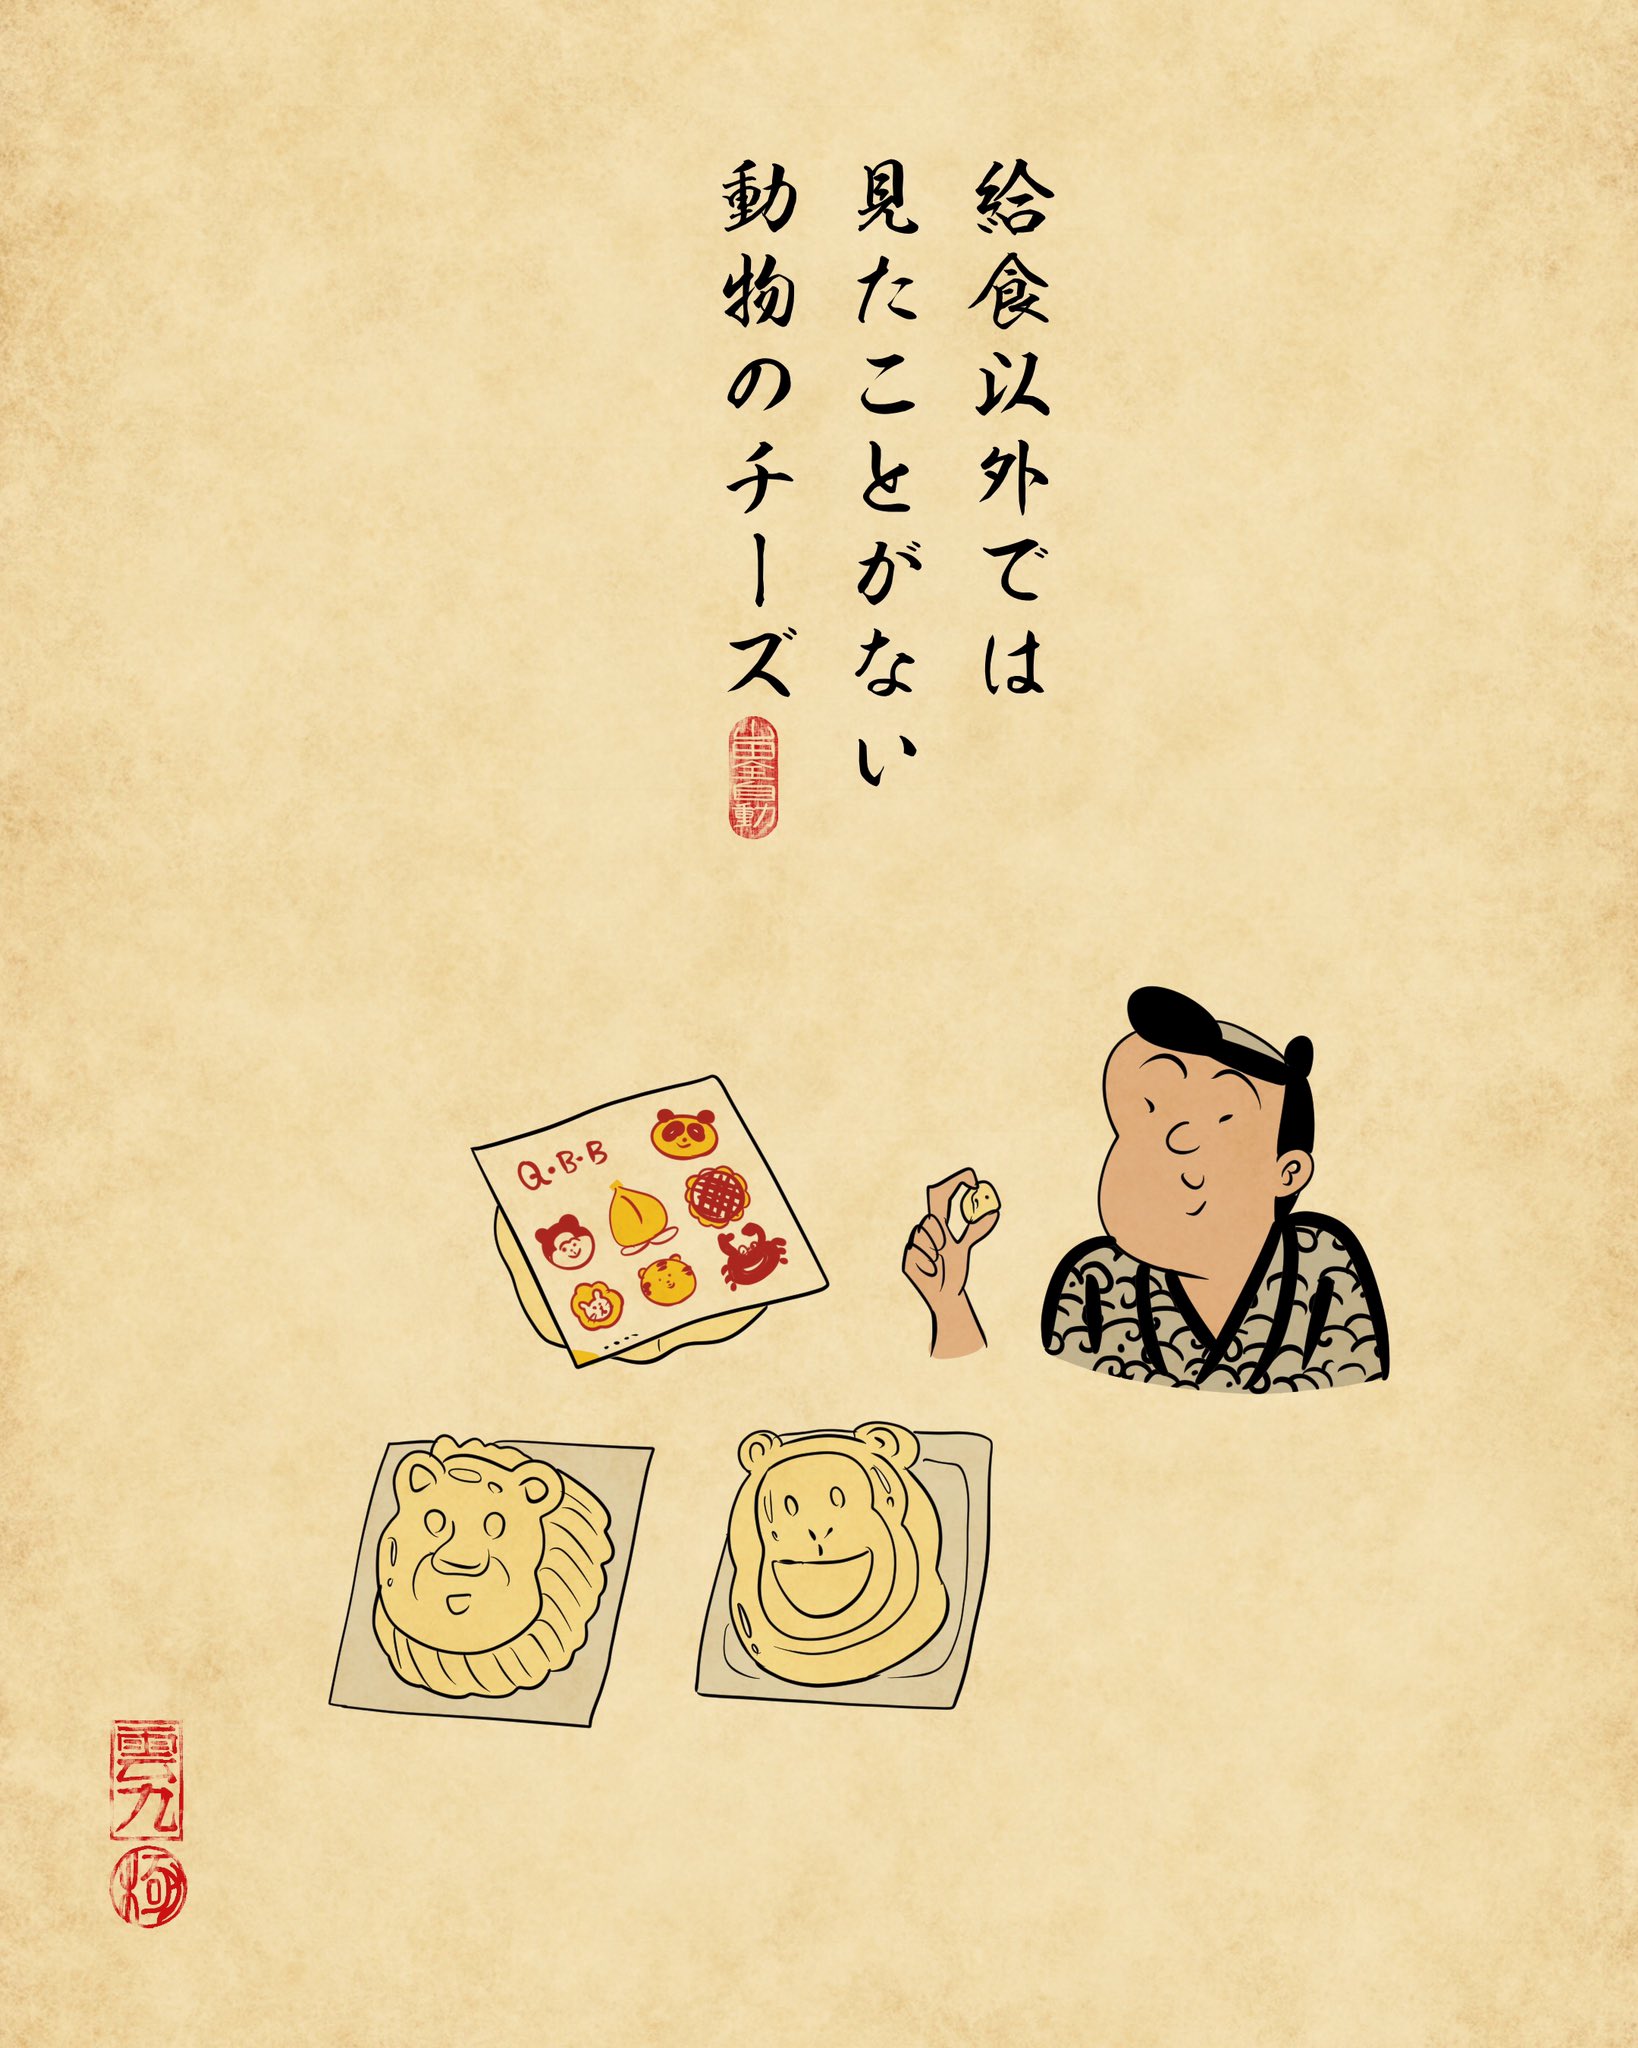 給食以外では
見たことがない
動物のチーズ
山田全自動
Q・B・B
雲九
極